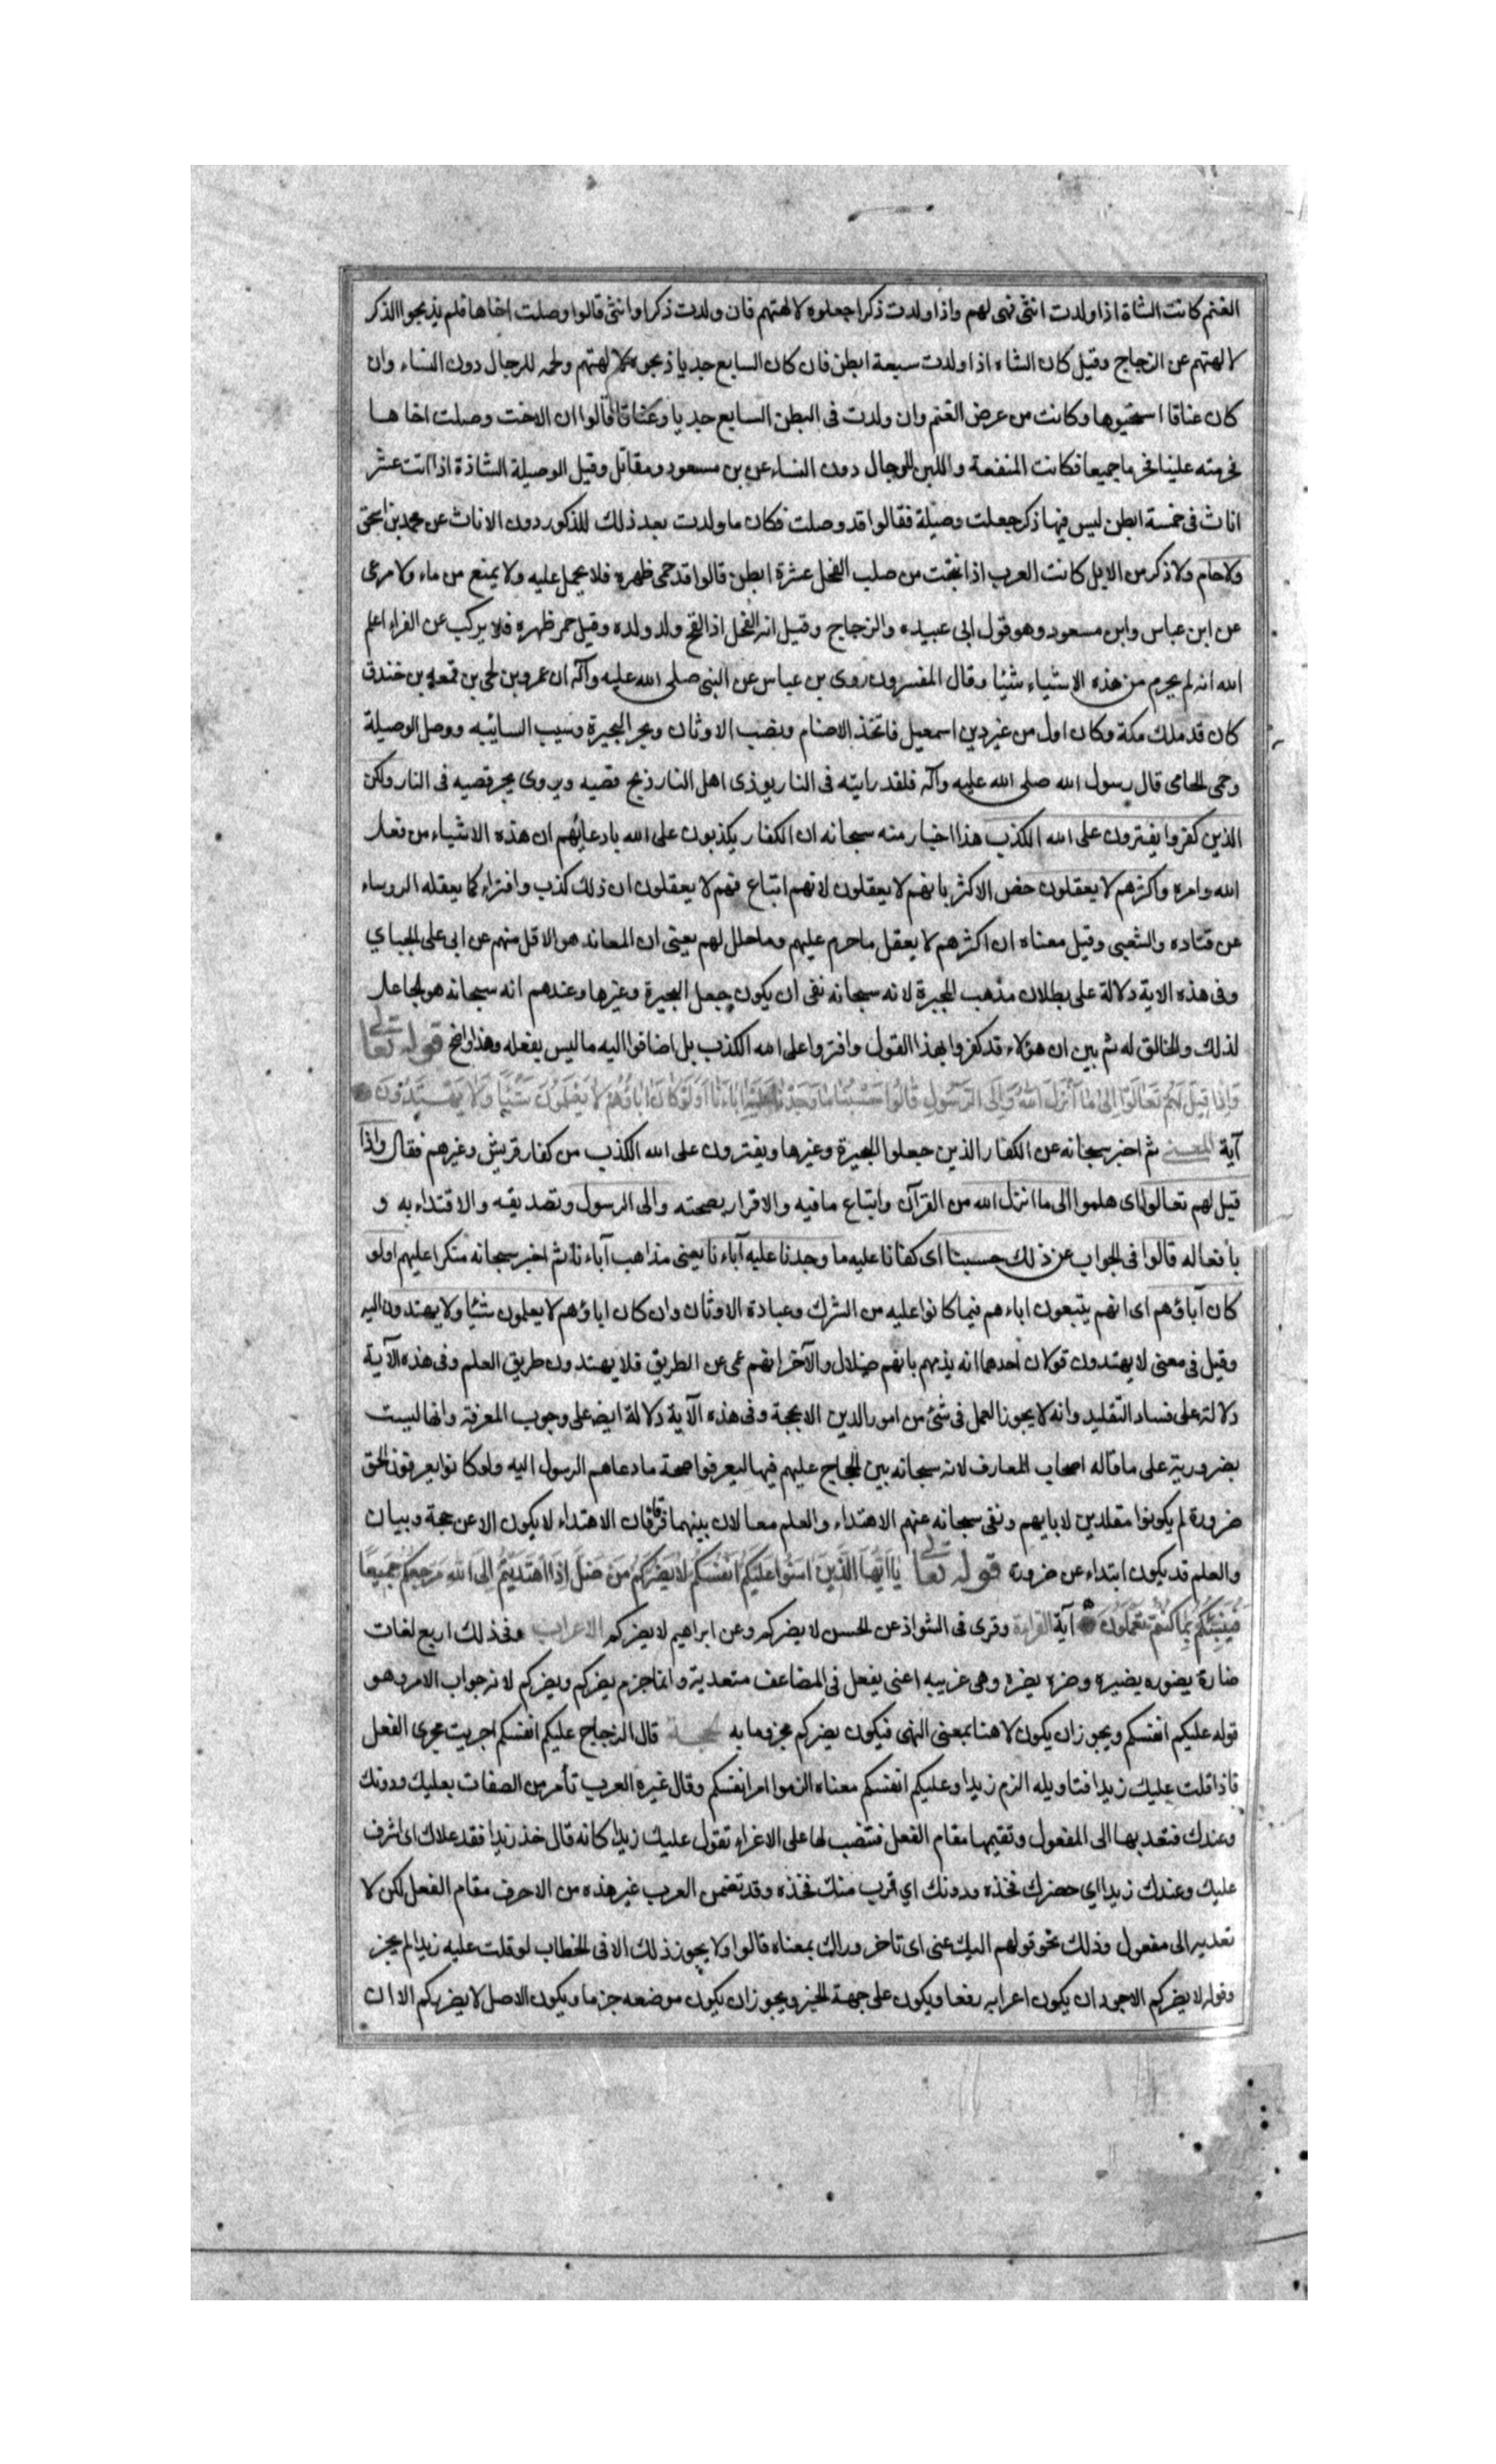 الغنم كانت الشاة اذا ولدت انثى فهى لهم واذا ولدت ذكرا جعلوه لالهتهم فان ولدت ذكرا وانثى قالوا وصلت اخاها فلم يذبحوا الذكر
لالهتهم عن الزجاج وقيل كان الشاه اذا ولدت سبعة ابطن فان كان السابع جديا ذبحوه لالهتهم ولحمه للرجال دون النساء وان
كان عناقا استحيوها وكانت من عرض الغنم وان ولدت فى البطن السابع جديا وعناقا قالوا ان الاخت وصلت اخاها
فحرمته علينا فحرما جميعا فكانت المنفعة واللبن للرجال دون النساء عن بن مسعود ومقاتل وقيل الوصيلة الشاذة اذا اتت عشر
اناث فى خمسة ابطن ليس فيها ذكر جعلت وصيلة فقالوا قد وصلت فكان ما ولدت بعد ذلك للذكور دون الاناث عن محمد بن اسحق
ولا حام ولا ذكر من الابل كانت العرب اذا نتجت من صلب الفحل عشرة ابطن قالوا قد حمى ظهره فلا يحمل عليه ولا يمنع من ماء ولا مرعى
عن ابن عباس وابن مسعود وهو قول ابى عبيده والزجاج وقيل انه الفحل اذا لقح ولد ولده وقيل حمى ظهره فلا يركب عن الفراء اعلم
الله انه لم يحرم من هذه الاشياء شيئا وقال المفسرون روى بن عباس عن النبى صلى الله عليه وآله ان عمرو بن لحى بن قمعه بن خندق
كان قد ملك مكة وكان اول من غير دين اسمعيل فاتخذ الاصنام ونصب الاوثان وبحر البحيرة وسيب السائبه ووصل الوصيلة
وحمى الحامى قال رسول الله صلى الله عليه وآله فلقد رايته فى النار يوذى اهل النار ذبح قصبه ويروى يجر قصبه فى النار ولكن
الذين كفروا يفترون على الله الكذب هذا اخبار منه سبحانه ان الكفار يكذبون على الله بادعائهم ان هذه الاشياء من فعل
الله وامره واكثرهم لا يعقلون خص الاكثر بانهم لا يعقلون لانهم اتباع فهم لا يعقلون ان ذلك كذب وافتراء كما يعقله الروساء
عن قتاده والشعبى وقيل معناه ان اكثرهم لا يعقل ما حرم عليهم وما حلل لهم يعنى ان المعاند هو الاقل منهم عن ابى على الجباي
وفى هذه الاية دلالة على بطلان مذهب المجبرة لانه سبحانه نفى ان يكون جعل البحيرة وغيرها وعندهم انه سبحانه هو الجاعل
لذلك والخالق له ثم بين ان هؤلاء قد كفروا بهذا القول وافتروا على الله الكذب بل اضافوا اليه ما ليس يفعله وهذا واضح قوله تعالى
وَإِذَا قِيلَ لَهُمْ تَعَالَوْا إِلَى مَا أَنْزَلَ اللهُ وَإِلَى الرَّسُولِ قَالُوا حَسْبُنَا مَا وَجَدْنَا عَلَيْهِ آبَاءَنَا أَوَلَوْ كَانَ آبَاؤُهُمْ لَا يَعْلَمُونَ شَيْئًا وَلَا يَهْتَدُونَ
آية المعنى ثم اخبر سبحانه عن الكفار الذين جعلوا البحيرة وغيرها ويفترون على الله الكذب من كفار قريش وغيرهم فقال واذا
قيل لهم تعالوا اى هلموا الى ما انزل الله من القرآن واتباع ما فيه والاقرار بصحته والى الرسول وتصديقه والاقتداء به و
بأفعاله قالوا فى الجواب عن ذلك حسبنا اى كفانا عليه ما وجدنا عليه آباءنا يعنى مذاهب آباءنا ثم اخبر سبحانه منكرا عليهم اولو
كان آباؤهم اى انهم يتبعون اباءهم فيما كانوا عليه من الشرك وعبادة الاوثان وان كان اباؤهم لا يعلمون شيئا ولا يهتدون اليه
وقيل فى معنى لا يهتدون قولان احدهما انه يذمهم بانهم ضلال والآخر انهم عمى عن الطريق فلا يهتدون طريق العلم وفى هذه الآية
دلالة على فساد التقليد وانه لا يجوز العمل فى شئ من امور الدين الا بحجة وفى هذه الآية دلالة ايضا على وجوب المعرفة وانها ليست
بضرورية على ما قاله اصحاب المعارف لانه سبحانه بين الحجاج عليهم فيها ليعرفوا صحة ما دعاهم الرسول اليه ولو كانوا يعرفون الحق
ضرورة لم يكونوا مقلدين لابايهم ونفى سبحانه عنهم الاهتداء والعلم معا لان بينهما فرقا فان الاهتداء لا يكون الا عن حجة وبيان
والعلم قد يكون ابتداء عن ضرورة قوله تعالى يَا أَيُّهَا الَّذِينَ آمَنُوا عَلَيْكُمْ أَنْفُسَكُمْ لَا يَضُرُّكُمْ مَنْ ضَلَّ إِذَا اهْتَدَيْتُمْ إِلَى اللهِ مَرْجِعُكُمْ جَمِيعًا
فَيُنَبِّئُكُمْ بِمَا كُنْتُمْ تَعْمَلُونَ آية القراءة وقرى فى الشواذ عن الحسن لا يضركم وعن ابراهيم لا يضركم الاعراب وفى ذلك اربع لغات
ضارة يضوره يضيره وضره يضره وهى غريبه اعنى يفعل فى المضاعف متعدية وانما جزم يضركم ويضركم لانه جواب الامر وهو
قوله عليكم انفسكم ويجوز ان يكون لا هنا بمعنى النهى فيكون يضركم مجزوما به الحجة قال الزجاج عليكم انفسكم اجريت مجرى الفعل
فاذا قلت عليك زيدا فتاويله الزم زيدا وعليكم انفسكم معناه الزموا امر انفسكم وقال غيره العرب تأمر من الصفات بعليك ودونك
وعندك فتعديها الى المفعول وتقيمها مقام الفعل فتنصب لها على الاغراء تقول عليك زيدا كانه قال خذ زيدا فقد علاك اى اشرف
عليك وعندك زيدا اى حضرك فخذه ودونك اي قرب منك فخذه وقد تقيمن العرب غير هذه من الاحرف مقام الفعل لكن لا
تعديه الى مفعول وذلك نحو قولهم اليك عنى اى تاخر وراك بمعناه قالوا ولا يجوز ذلك الا فى الخطاب لو قلت عليه زيدا لم يجز
وقوله لا يضركم الاجود ان يكون اعرابه رفعا ويكون على جهة الخبر ويجوز ان يكون موضعه جزما ويكون الاصل لا يضرركم الا ان